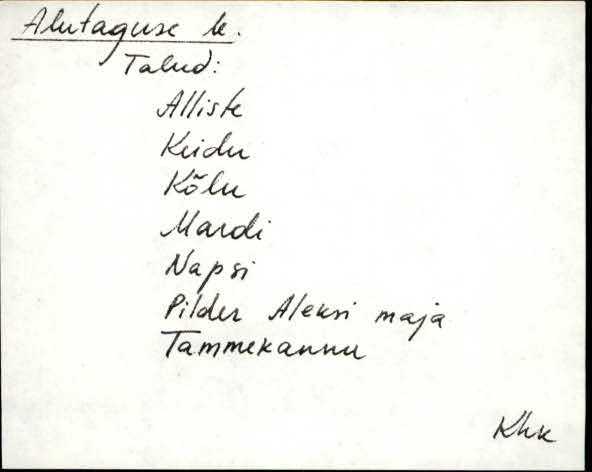 Alutaguse k.
Talud:
Alliste
Keidu
Kõlu
Mardi
Napsi
Pilder Aleksi maja
Tammekannu
Khk